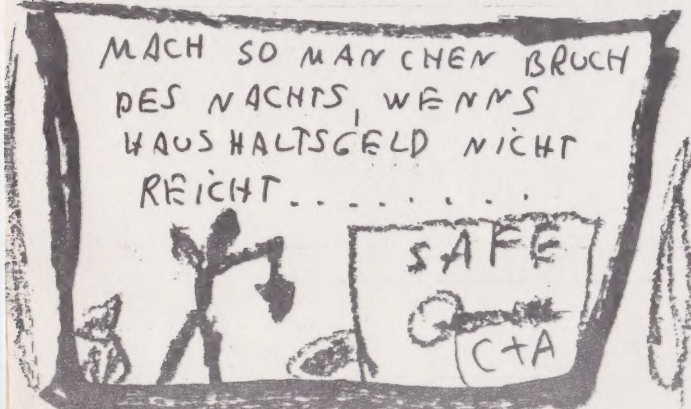 MACH SO MANCHEN BRUCH
DES NACHTS, WENNS
HAUSHALTSGELD NICHT
REICHT.........
SAFE
C+A